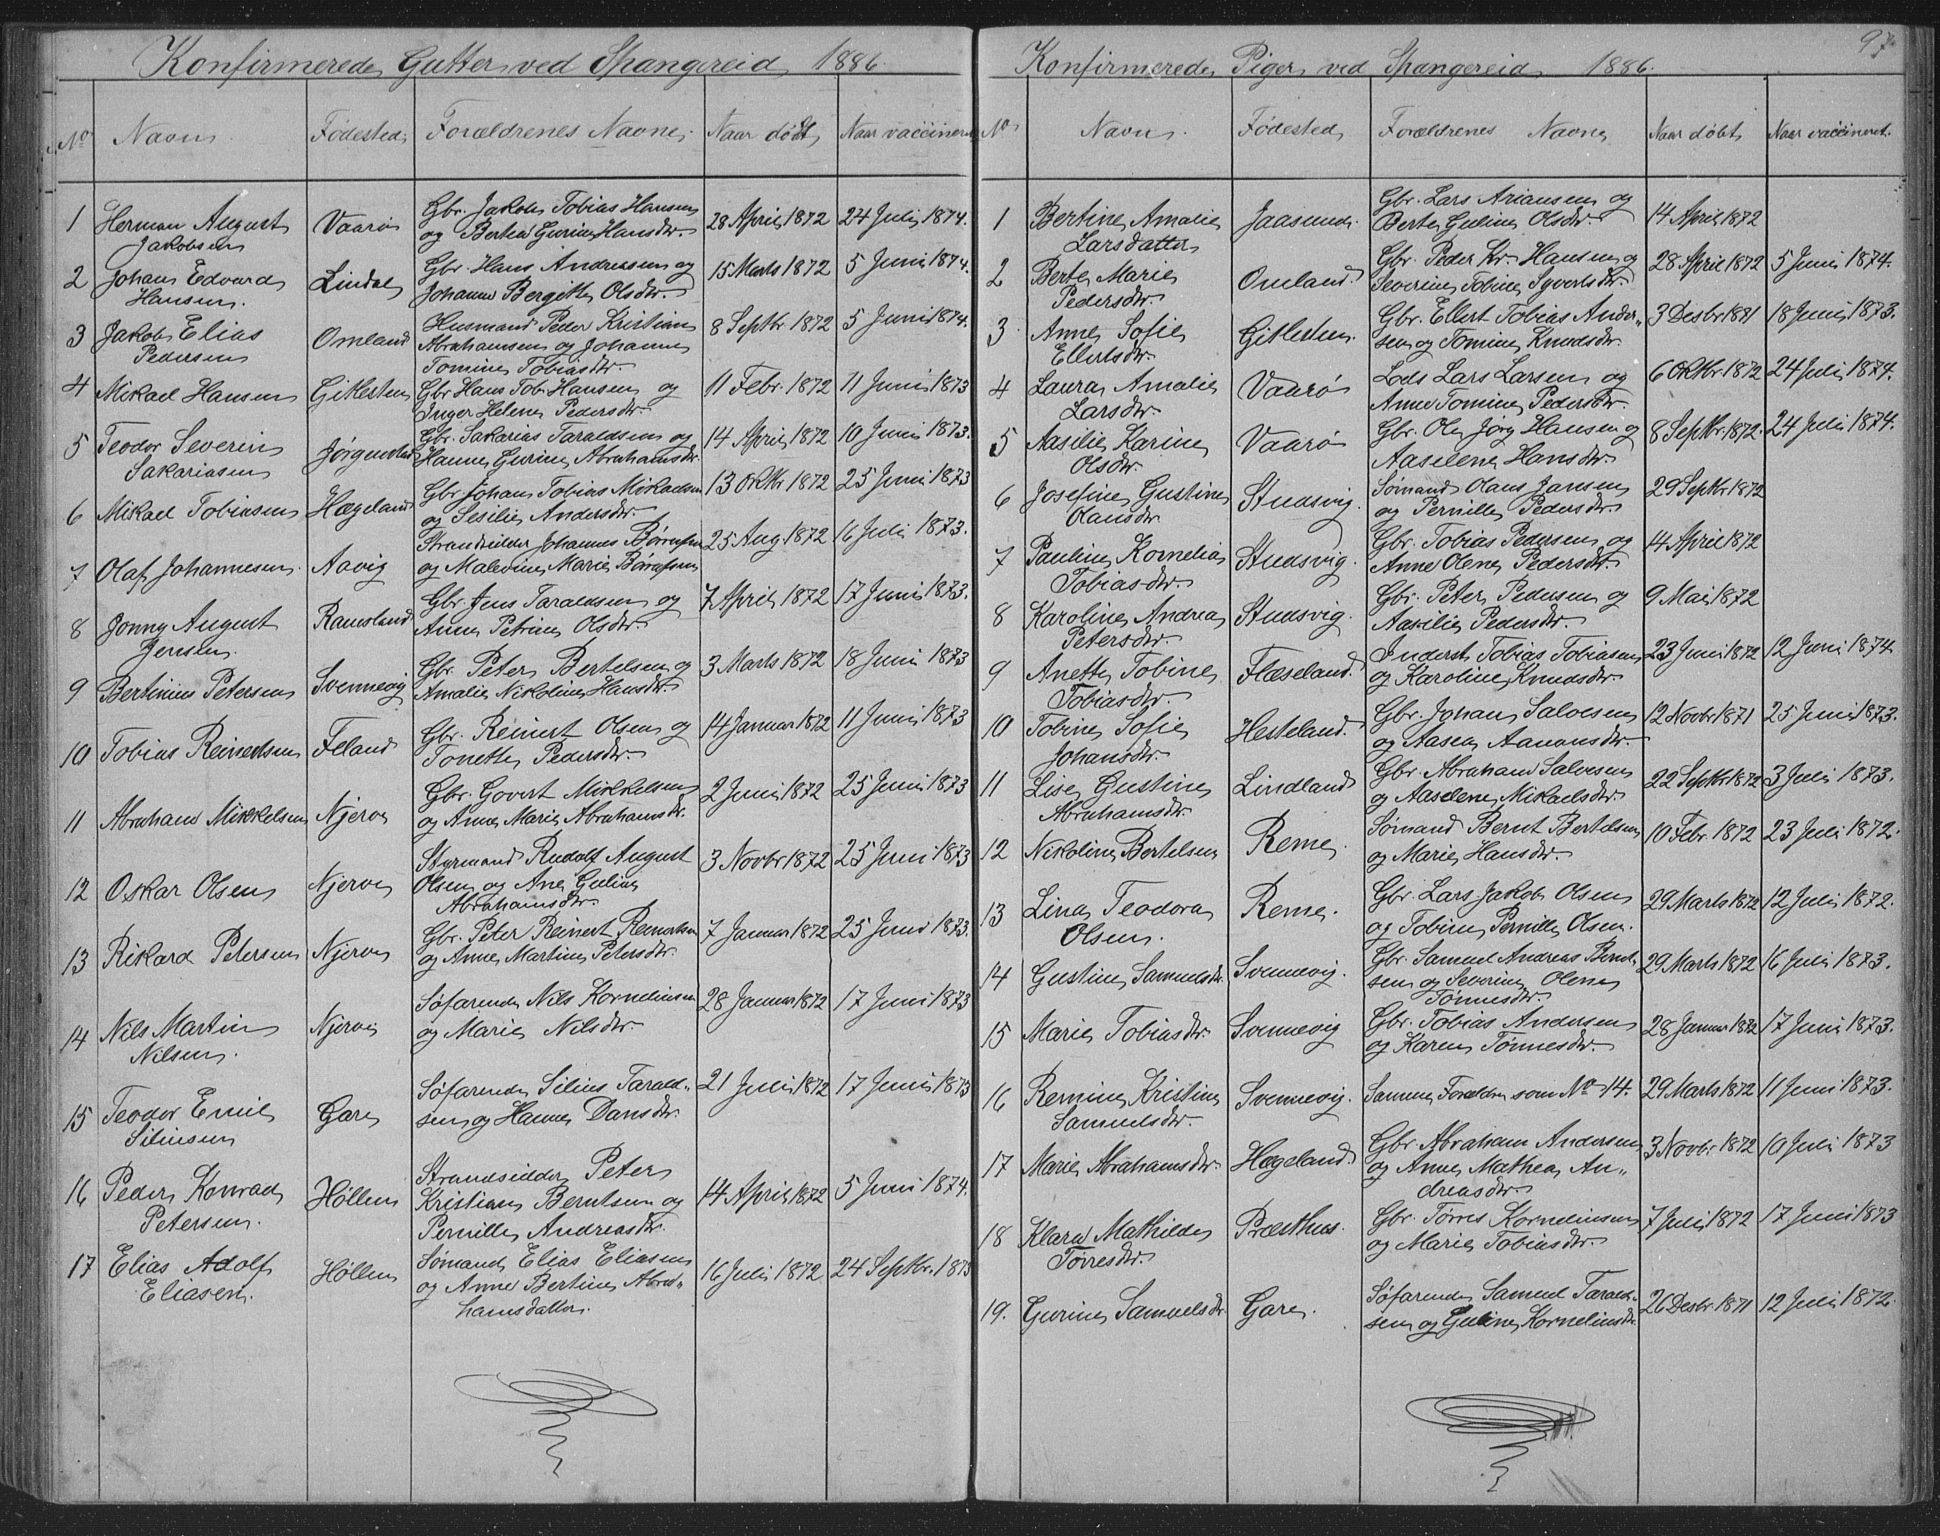 Konfirmerede Gutter ved Spangereid 1886.
No Navn Fødested Forældrenes Navne Naar døbt Naar vaccineret
1 Herman August Jakobsen Vaarø Gbr. Jakob Tobias Hansen og Berthe Gurine Hansdtr. 28 April 1872 24 Juli 1874.
2 Johan Edvard Hansen. Lindal Gbr. Hans Andreasen og Johanne Bergitte Olsdtr. 15 Marts 1872 5 Juni 1874.
3 Jakob Elias Pedersen Omland Husmand Peder Kristian Abrahamsen og Johanne Tomine Tobiasdtr. 8 Septbr 1872 5 Juni 1874.
4 Mikael Hansen Gitlesten Gbr Hans Tob. Hansen og Inger Helene Pedersdtr. 11 Febr. 1872 11 Juni 1873
5 Teodor Severin Sakariasen Gbr. Sakarias Taraldsen og Hanne Gurine Abrahamsdtr. 14 April 1872 10 Juni 1873.
6 Mikael Tobiasen Hægeland Gbr Johan Tobias Mikaelsen og Sesilie Andersdtr. 13 Oktbr 1872 25 Juni 1873
7 Olaf Johannesen. Aavig Strandsidder Johannes og Malvine Marie 25 Aug. 1872 16 Juli 1873.
8 Jonny August Jensen. Ramsland Gbr. Jens Taraldsen og Anne Petrine Olsdtr. 7 April 1872 17 Juni 1873.
9 Bertinius Petersen Svennevig Gbr. Peter Bertelsen og Amalie Nikoline Hansdtr. 3 Marts 1872 18 Juni 1873
10 Tobias Reinertsen Feland Gbr. Reinert Olsen og Tonette Pedersdtr. 14 Januar 1872 11 Juni 1873
11 Abraham Mikkelsen Njerve Gbr. Govert Mikkelsen og Anne Marie Abrahamsdtr. 2 Juni 1872 25 Juni 1873
12 Oskar Olsen Njerve Styrmand Rudolf August Olsen og Ane Guline Abrahamsdtr. 3 Novbr 1872 25 Juni 1873
13 Rikard Petersen Njerve Gbr. Peter Reinert Reinertsen og Anne Martine Petersdtr. 7 Januar 1872 25 Juni 1873.
14 Nils Martin Nilsen. Njerve Søfarende Nils Kornelinsen og Marie Nilsdtr. 28 Januar 1872 17 Juni 1873
15 Teodor Emil Silinsen Gare Søfarende Silius Tarald-sen og Hanne Dansdtr. 21 Juli 1872 17 Juni 1873
16 Peder Konrad Petersen. Høllen Strandsidder Peter Kristian Berntsen og Pernille Andreasdtr. 14 April 1872 5 Juni 1874.
17 Elias Adolf Eliasen. Høllen Sømand Elias Eliasen og Anne Bertine Abra-hamsdatter. 16 Juli 1872 24 Septbr. 1873
97
Konfirmerede Piger ved Spangereid 1886.
No Navn. Fødested Forældrenes Navne Naar døbt Naar vaccineret.
1 Bertine Amalie Larsdatter Jaasund. Gbr. Lars Ariansen og Berte Guline Olsdtr. 14 April 1872
2 Berte Marie Pedersdtr. Omland. Gbr. Peder Kr. Hansen og Severine Tobine Syvertsdtr. 28 April 1872 5 Juni 1874.
3 Anne Sofie Ellertsdtr. Gitlesten. Gbr. Ellert Tobias Ander-sen og Tomine Knudsdtr. 3 Desbr 1881 18 Juni 1873.
4 Laura Amalie Larsdtr. Vaarø Lods Lars Larsen og Anne Tomine Pedersdtr. 6 Oktbr 1872 24 Juli 1874.
5 Aasilie Karine Olsdtr. Vaarø Gbr. Ole Jørg Hansen og Aaselene Hansdtr. 8 Septbr. 1872. 24 Juli 1874.
6 Josefine Gustine Olausdtr Studsvig. Sømand Olaus Jansen og Pernille Pedersdtr. 29 Septbr 1872
7 Pauline Kornelia Tobiasdtr. Studsvig. Gbr. Tobias Pedersen og Anne Olene Pedersdtr. 14 April 1872
8 Karoline Andrea Petersdtr. Studsvig. Gbr. Peter Pedersen og Aasilie Pedersdtr. 9 Mai 1872
9 Anette Tobine Tobiasdtr. Flæseland. Inderst Tobias Tobiasen og Karoline Knudsdtr. 23 Juni 1872 12 Juni 1874
10 Tobine Sofie Johansdtr. Hesteland. Gbr. Johan Salvesen og Aasea Aanonsdtr. 12 Novbr 1871 25 Juni 1873.
11 Lise Gustine Abrahamsdtr. Lindland Gbr. Abraham Salvesen og Aaselene Mikaelsdtr. 22 Septbr 1872 3 Juli 1873.
12 Nikoline Bertelsen Reme. Sømand Bernt Bertelsen og Marie Hansdtr. 10 Febr. 1872 23 Juli 1872.
13 Lina Teodora Olsen. Reme. Gbr. Lars Jakob Olsen og Tobine Pernille Olsen. 29 Marts 1872 12 Juli 1872.
14 Gustine Samuelsdtr. Svennevig. Gbr. Samuel Andreas Bernt-sen og Severine Olene Tønnesdtr. 29 Marts 1872 16 Juli 1873.
15 Marie Tobiasdtr. Svennevig Gbr. Tobias Andersen og Karen Tønnesdtr. 28 Januar 1872 17 Juni 1873.
16 Remine Kristine Samuelsdtr. Svennevig. Samme Forældre som No 14. 29 Marts 1872 11 Juni 1873.
17 Marie Abrahamsdtr. Hægeland Gbr. Abraham Andersen og Anne Mathea An-dreasdtr. 3 Novbr 1872 10 Juli 1873
18 Klara Mathilde Tørresdtr. Præsthus. Gbr. Tørres Kornelinsen og Marie Tobiasdtr. 7 Juli 1872 17 Juni 1873
19. Gurine Samuelsdtr Gare. Søfarende Samuel Tarald-sen og Guline Kornelinsdtr. 26 Desbr. 1871 12 Juli 1872.